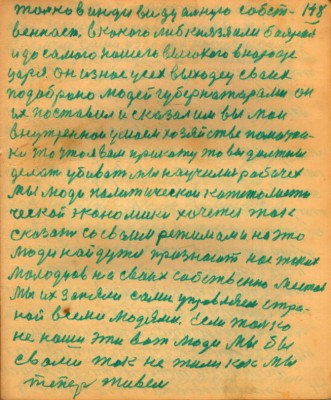 толко в индивидуалную собст- 148
веннаст. в каково либ князя или бояра
и до самого нашего великого в народе
царя он изнае усех выходец своих
подобрано людей губернаторами он
их поставил и сказал им вы мои
внутренной у моем хозяйстве помошни-
ки то что я вам прикажу то вы должны
делать убивать мы научили рабочех
мы люди политическои капиталисти
ческой экономики хочется так
сказать со своим режимам и на это
люди найдутся признают нас таких
молодцов на своих собственно местах
мы их заняли сами управляем стра-
ной всеми людями. Если толко
не наши эти вот люди мы бы
свами так не жили как мы
тепер живем